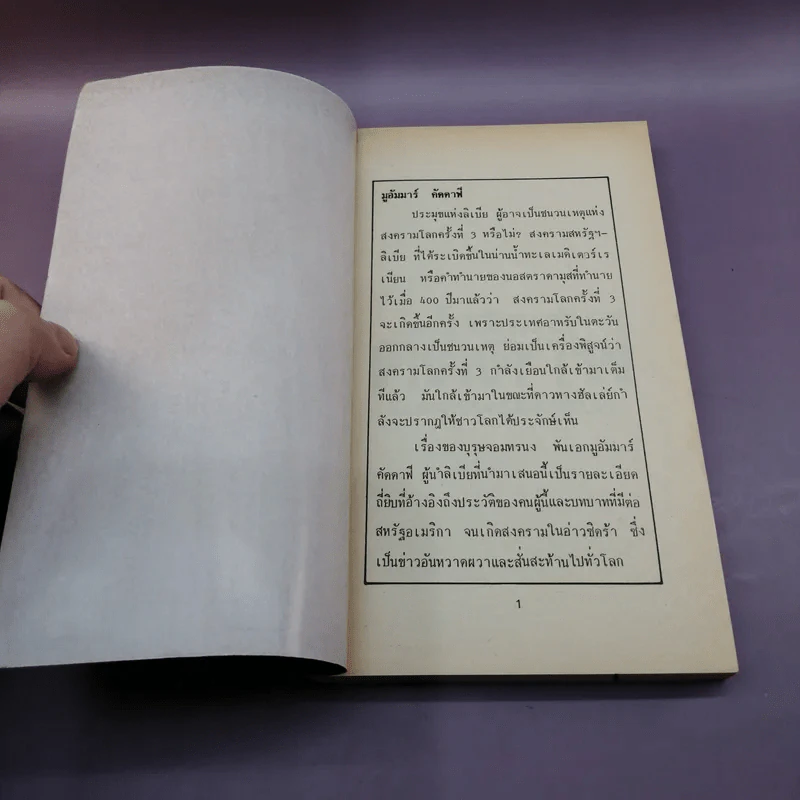 มูอัมมาร์ คัดดาฟี
ประมุขแห่งลิเบีย ผู้อาจเป็นชนวนเหตุแห่ง
สงครามโลกครั้งที่ 3 หรือไม่? สงครามสหรัฐฯ-
ลิเบีย ที่ได้ระเบิดขึ้นในน่านน้ำทะเลเมดิเตอร์เร
เนียน หรือคำทำนายของนอสตราดามุสที่ทำนาย
ไว้เมื่อ 400 ปีมาแล้วว่า สงครามโลกครั้งที่ 3
จะเกิดขึ้นอีกครั้ง เพราะประเทศอาหรับในตะวัน
ออกกลางเป็นชนวนเหตุ ย่อมเป็นเครื่องพิสูจน์ว่า
สงครามโลกครั้งที่ 3 กำลังเยือนใกล้เข้ามาเต็ม
ทีแล้ว มันใกล้เข้ามาในขณะที่ดาวหางฮัลเล่ย์กำ
ลังจะปรากฏให้ชาวโลกได้ประจักษ์เห็น
เรื่องของบุรุษจอมทรนง พันเอกมูอัมมาร์
คัดดาฟี ผู้นำลิเบียที่นำมาเสนอนี้เป็นรายละเอียด
ถี่ยิบที่อ้างอิงถึงประวัติของคนผู้นี้และบทบาทที่มีต่อ
สหรัฐอเมริกา จนเกิดสงครามในอ่าวซิดร้า ซึ่ง
เป็นข่าวอันหวาดผวาและสั่นสะท้านไปทั่วโลก
1